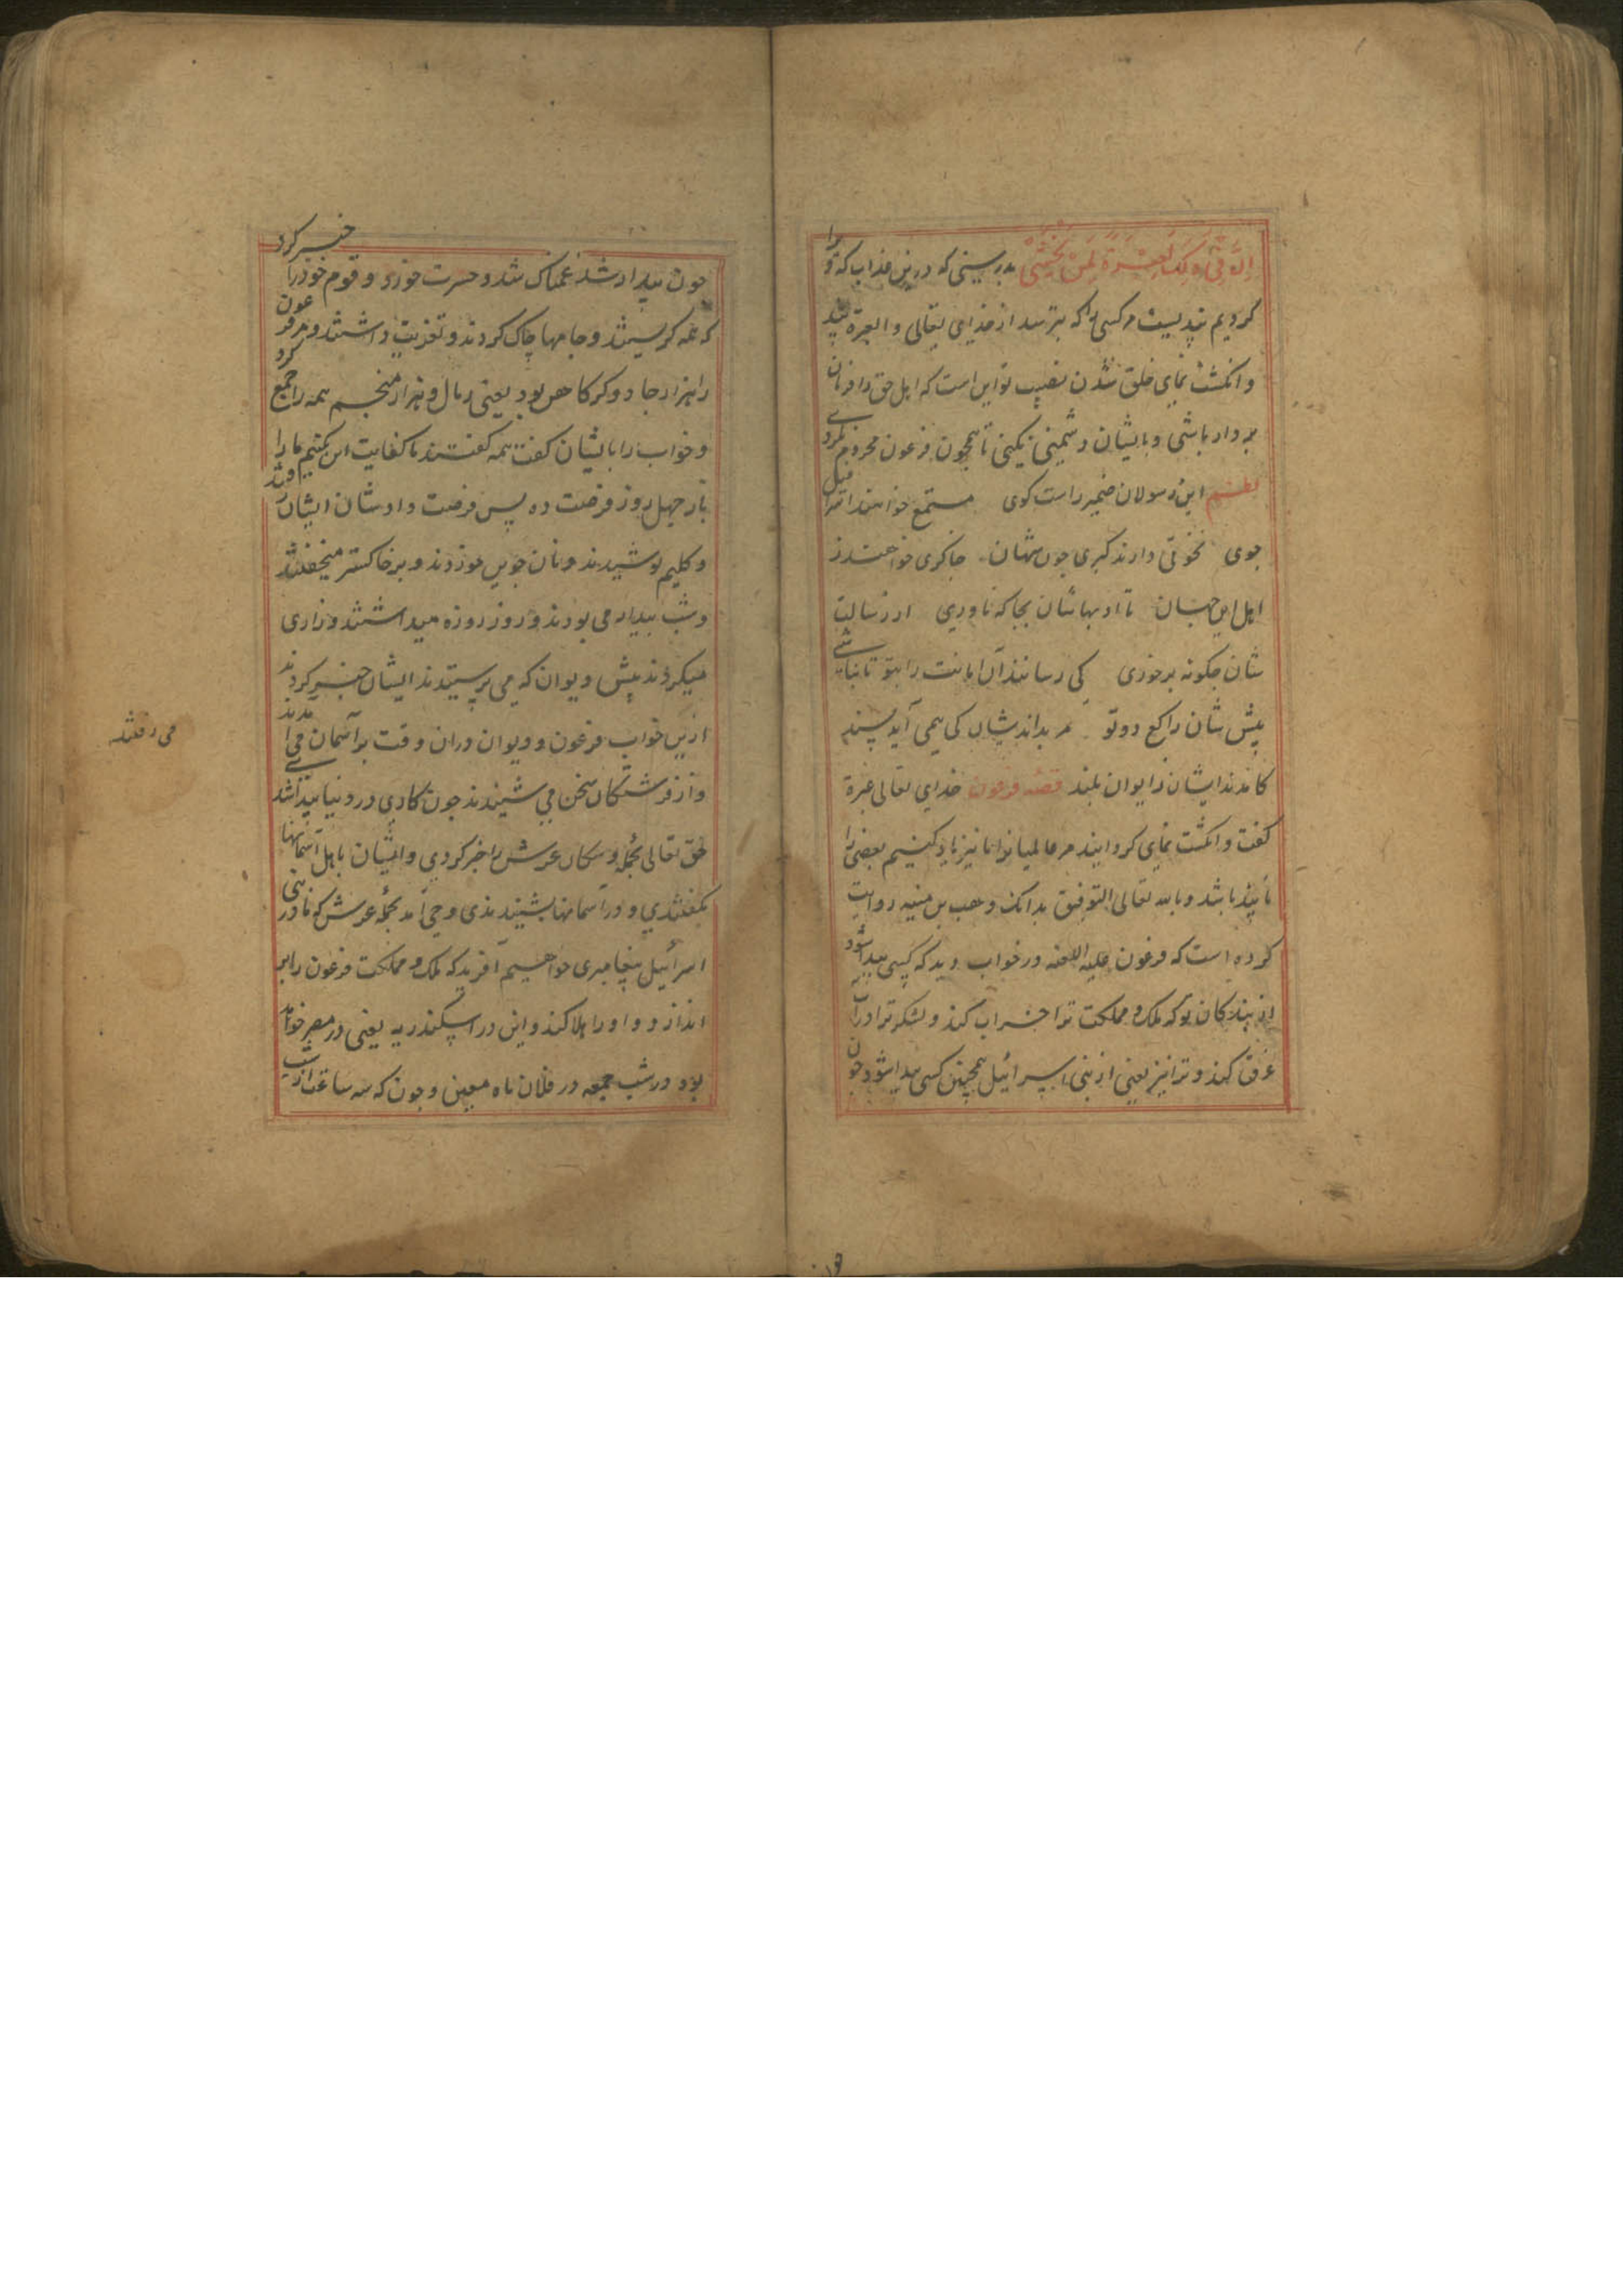 إن في ذلك لعبرة لمن يخشى بدرستی که درین عذاب که ترا
کردیم پندیست مر کسی را که بترسد از خدای تعالی و العبرة پند
و انگشت نمای خلق شدن نصیب تو این است که اهل حق را فرمان
بردار باشی و بایشان دشمنی نکنی تا همچون فرعون محروم نگردی
نظم این رسولان ضمیر راست کوی مستمع خواهند اسرافیل
جوی نخوتی دارند کبری چون شهان چاکری خواهند از
اهل این جهان تا ادبهاشان بجا که ناوری از رسالت
شان چگونه برخوری کی رسانند آن امانت را بتو تا نباشی
پیش شان راکع دوتو هر ادبشان کی همی آید پسند
کامدند ایشان ز ایوان بلند قصه فرعون خدای تعالی عبرة
کفت و انکشت نمای کردانید مر عالمیانرا ما نیز یاد کنیم بعضی را
تا پند باشد و بالله تعالی التوفیق بدانک وهب بن منبه روایت
کرده است که فرعون علیه اللعنه در خواب دید که کسی پیدا شود
از بندکان تو که ملک و مملکت ترا خراب کند و لشکر ترا در آب
غرق کند و ترا نیز یعنی از بنی اسرائیل همچنین کسی پیدا شود چون
چون بیدار شد غمناک شد و حسرت خورد و قوم خود را خبر کرد
که همه کریستند و جامها چاک کردند و تعزیت داشتند و مر فرعون
را هزار جادوکر کاهن بود یعنی رمال و هزار منجم همه را جمع کرد
و خواب را بایشان کفت همه کفتند ما کفایت این کنیم ما را
تا چهل روز فرصت ده پس فرصت دادشان ایشان رفتند
و کلیم پوشیدند و نان جوین خوردند و بر خاکستر میخفتند
و شب بیدار می بودند و روز روزه میداشتند و زاری
میکردند پیش دیوان که می پرستیدند ایشان خبر کردند
ازین خواب فرعون و دیوان دران وقت بر آسمان می آمدند
و از فرشتکان سخن می شنیدند چون کاری در دنیا پیدا شدی
حق تعالی بحمله و سکان عرش را خبر کردی و ایشان باهل آسمانها
بکفتندی و در آسمانها بشنیدندی وحی آمد بحمله عرش که ما در بنی
اسرائیل پیغامبری خواهیم آفرید که ملک و مملکت فرعون را بر
اندازد و او را هلا کند و این در اسکندریه یعنی در مصر خواهد
بود در شب جمعه در فلان ماه معین و چون که سه ساعت از شب
می رفتند